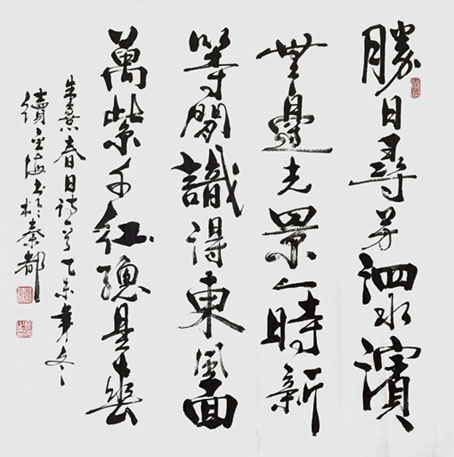 勝日尋芳泗水濱
無邊光景一時新
等閒識得東風面
萬紫千紅總是春
朱熹春日诗乙未年冬
續金海书於秦都